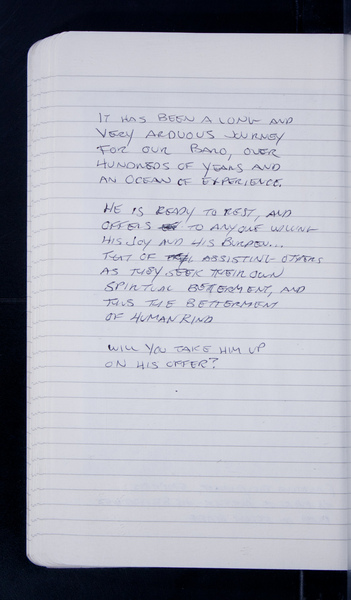 IT HAS BEEN A LONG AND
VERY ARDUOUS JOURNEY
FOR OUR BARD, OVER
HUNDREDS OF YEARS AND
AN OCEAN OF EXPERIENCE.
HE IS READY TO REST, AND
OFFERS TO ANYONE WILLING
HIS JOY AND HIS BURDEN...
THAT OF ASSISTING OTHERS
AS THEY SEEK THEIR OWN
SPIRITUAL BETTERMENT, AND
THUS THE BETTERMENT
OF HUMAN KIND
WILL YOU TAKE HIM UP
ON HIS OFFER?